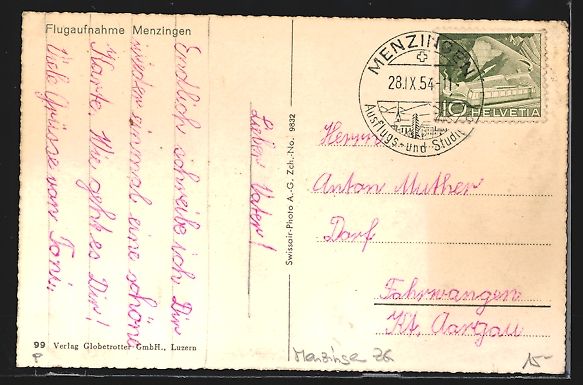 Flugaufnahme Menzingen
Lieber Vater!
Endlich schreibe ich Dir
wieder einmal eine schöne
Karte. Wie geht es Dir!
Viele Grüsse von Toni.
99 Verlag Globetrotter GmbH., Luzern
Swissair-Photo A.-G. Zch.-No. 9832
MENZINGEN
28.IX.54-11
Ausflugs- und Studi
10 HELVETIA
Herrn
Anton Muther
Dorf
Fahrwangen
Kt. Aargau
Menzingen ZG
15-